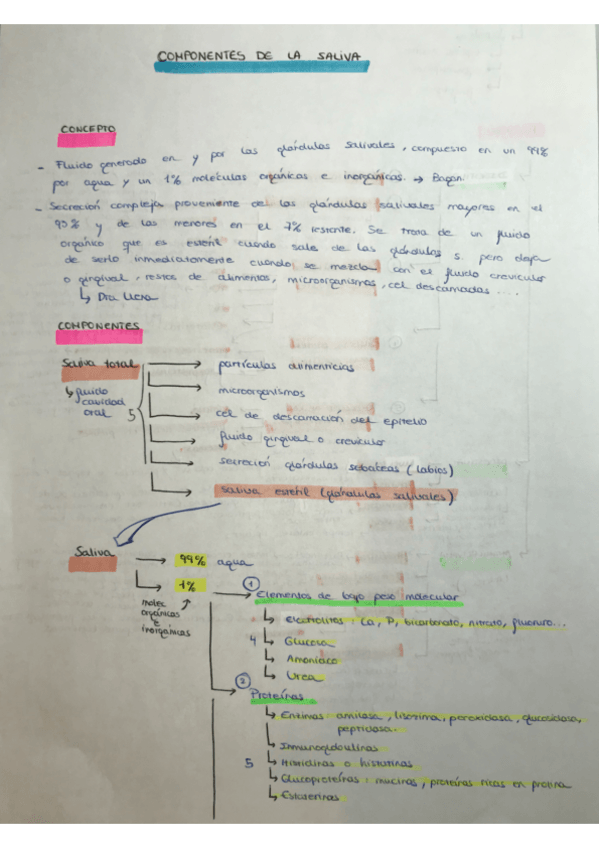 COMPONENTES DE LA SALIVA
CONCEPTO
- Fluido generado en y por las glándulas salivales, compuesto en un 99%
por agua y un 1% moleculas orgánicas e inorgánicas. → Bagan
- Secreción compleja proveniente de las glándulas salivales mayores en el
93% y de las menores en el 7% restante. Se trata de un fluido
orgánico que es esteril cuando sale de las glándulas s. pero deja
de serlo inmediatamente cuando se mezcla con el fluido crevicular
o gingival, restos de alimentos, microorganismos, cel descamadas ....
↳ Dra
COMPONENTES
Saliva total
↳ fluido
cavidad
oral
5
→ partículas alimenticias
→ microorganismos
→ cel de descamación del epitelio
→ fluido gingival o crevicular
→ secreción glándulas sebaceas (labios)
→ saliva esteril (glándulas salivales)
Saliva → 99% agua
↳ 1%
molec
orgánicas
e
inorgánicas
① Elementos de bajo peso molecular
↳ Electrolitos: Ca, P, bicarbonato, nitrato, fluoruro...
4 ↳ Glucosa
↳ Amoniaco
↳ Urea
② Proteínas
↳ Enzimas: amilasa, lisozima, peroxidasa, glucosidasa,
peptidasa.
↳ Inmunoglobulinas
5 ↳ Histidinas o histatinas
↳ Glucoproteínas: mucinas, proteínas ricas en prolina
↳ Estaterinas